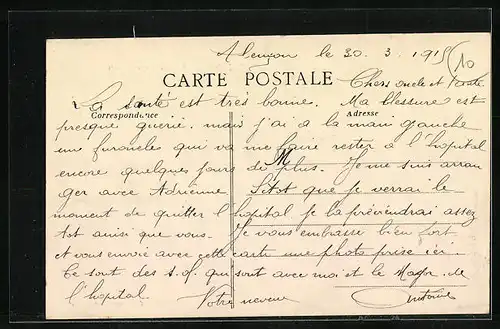 Alençon le 30. 3. 1915
10
CARTE POSTALE
Chers oncle et tante
La santé est très bonne. Ma blessure est
Correspondance
Adresse
presque guerie, mais j'ai à la main gauche
un furoncles qui va me faire rester à l'hopital
M
encore quelques jours de plus. Je me suis arran
ger avec Adrienne Sitot que je verrai le
moment de quitter l'hopital je la préviendrai assez
tot ainsi que vous. Je vous embrasse bien fort
et vous envoie avec cette carte une photo prise ici.
Ce sont des s.of. qui sont avec moi et le Major de
l'hopital. Votre neveu Antoine